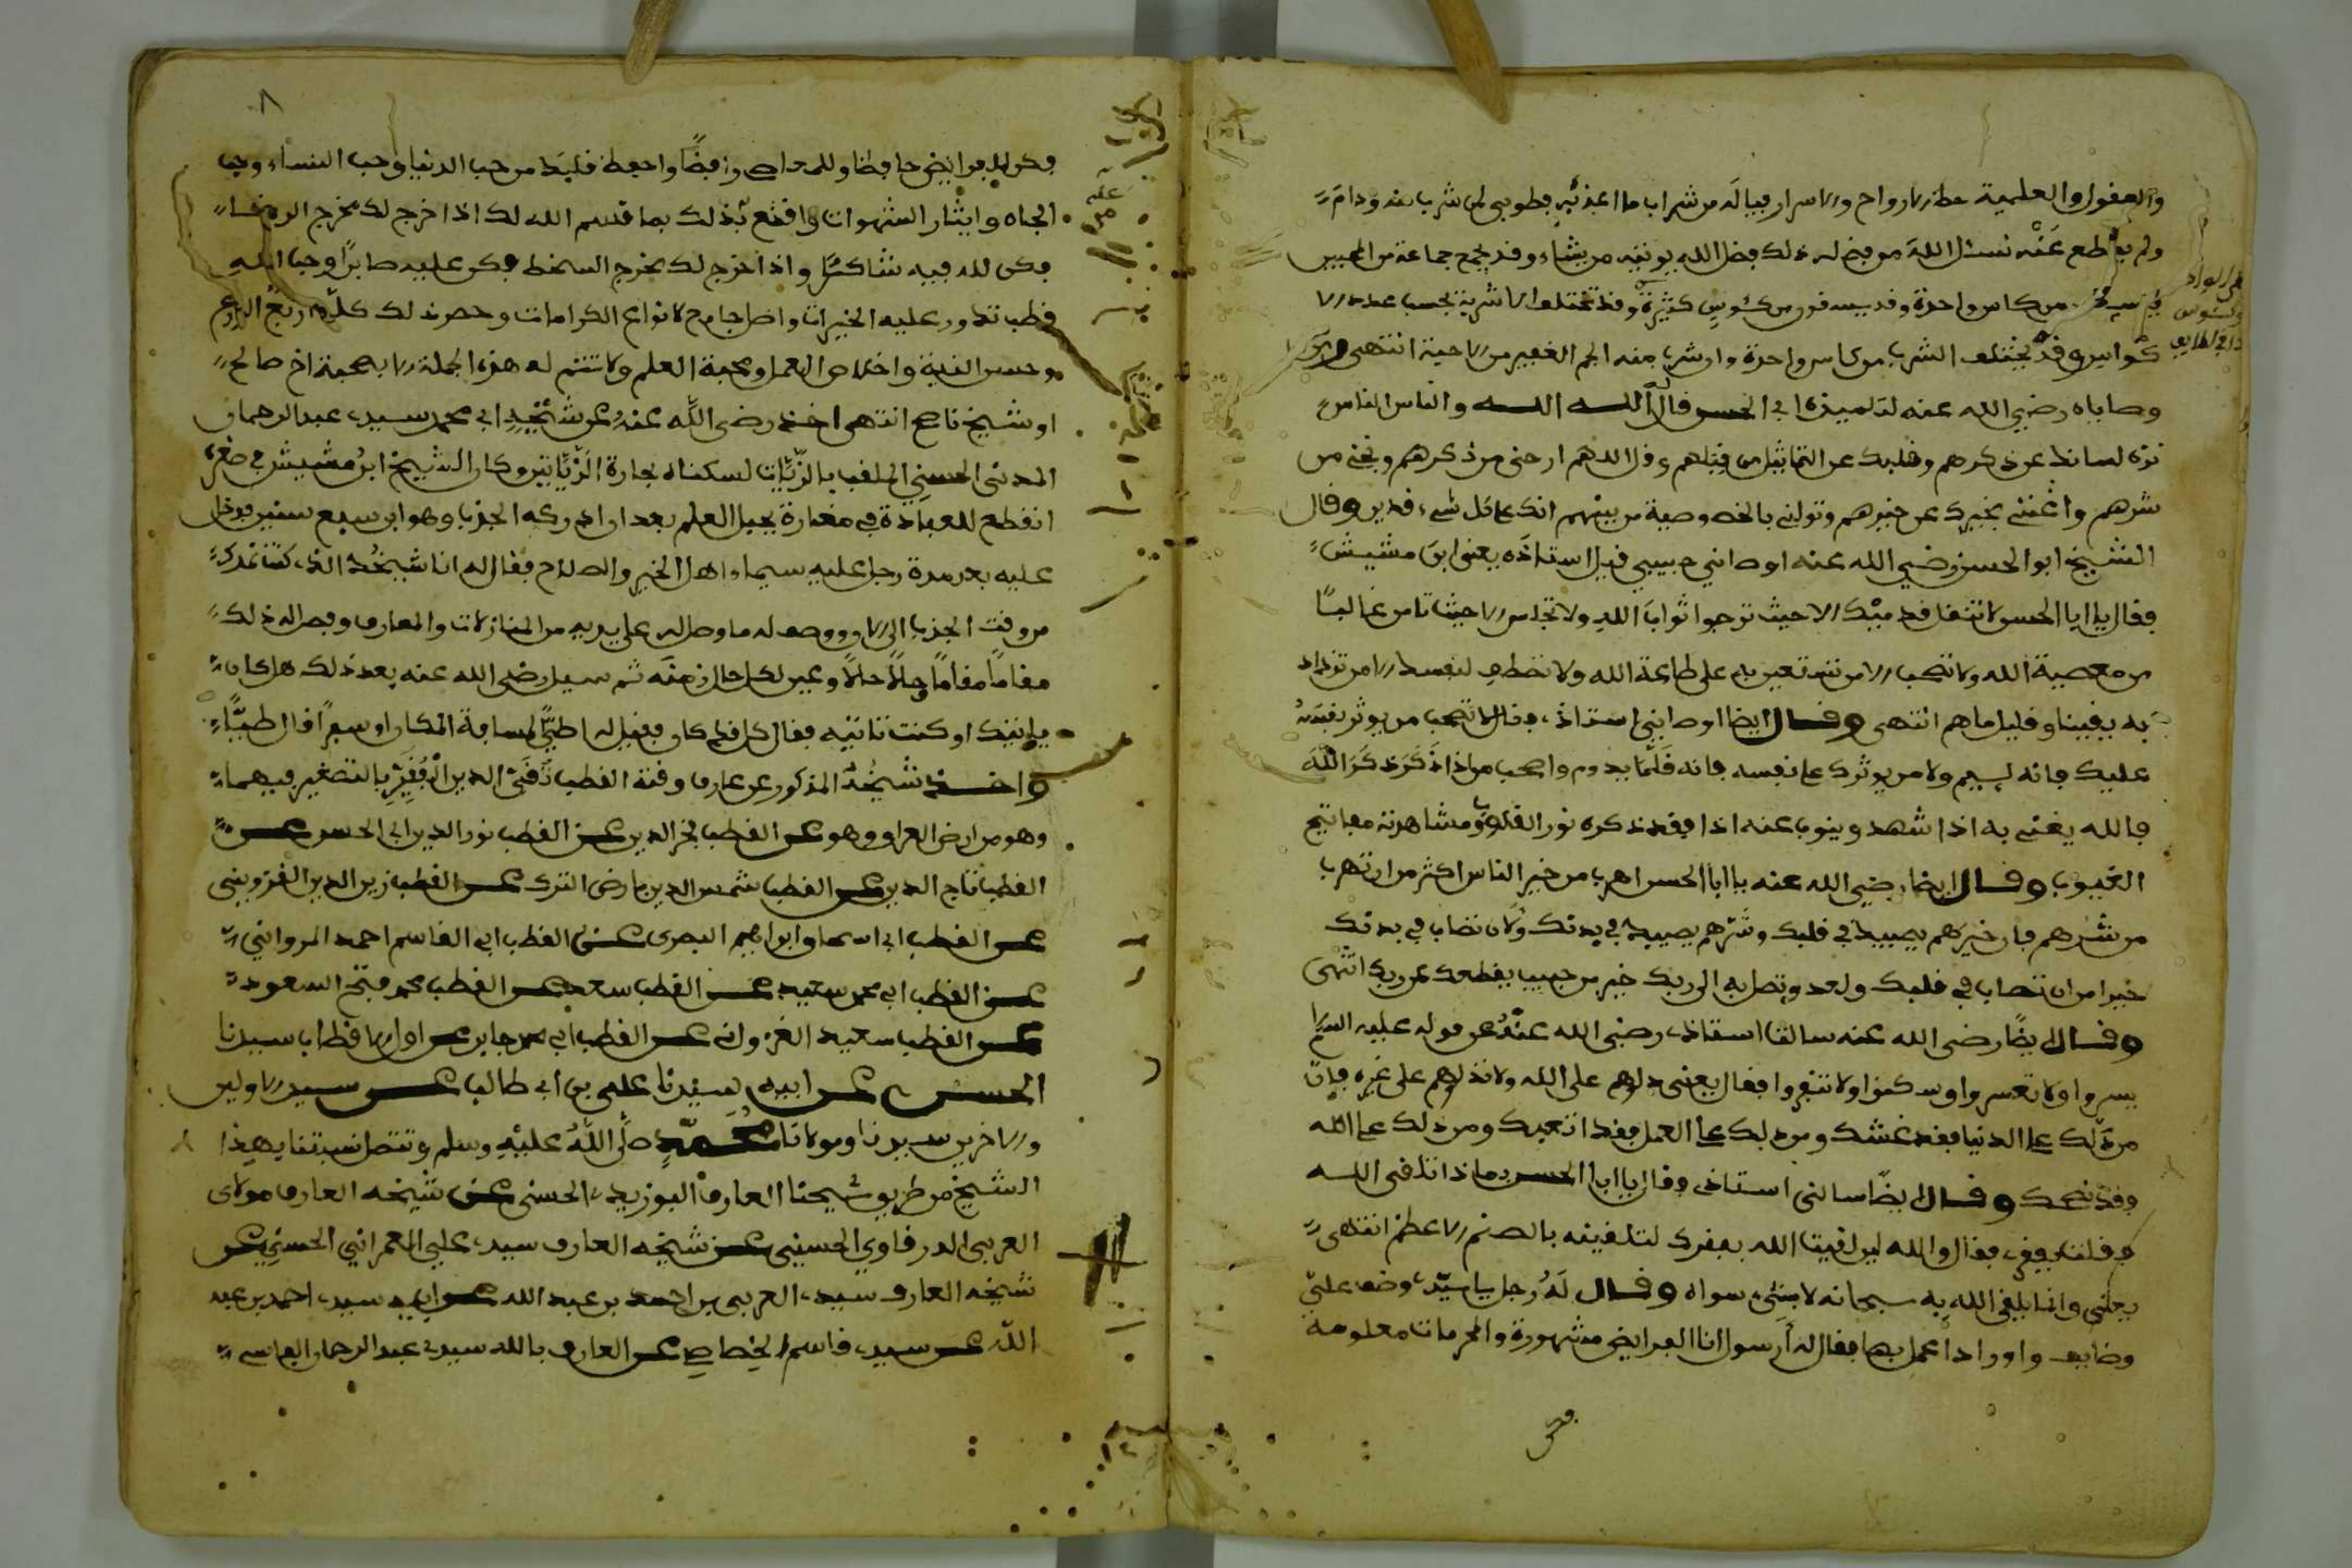 والعقول والعلمية حظ الارواح والاسرار فياله من شراب ما اعذبه فطوبى لمن شرب منه ودام
ولم يقطع عنه نسئل الله من فضله ذلك فضل الله يوتيه من يشاء وقد يجمع جماعة من المحبين
من كاس واحدة وقد يسقون من كئوس كثيرة وقد تختلف الاشربة بحسب عدد الا
كواس وقد يختلف الشرب من كاس واحدة وان شرب منه الجم الغفير من الاحبة انتهى
وصاياه رضي الله عنه لتلميذه ابي الحسن قال الله الله والناس الناس
نزه لسانك عن ذكرهم وقلبك عن التماثيل من قبلهم وقل اللهم ارحني من ذكرهم ونجني من
شرهم واغنني بخيرك عن خيرهم وتولني بالخصوصية من بينهم انك على كل شيء قدير وقال
الشيخ ابو الحسن رضي الله عنه اوصاني حبيبي قيل استاذه يعني ابن مشيش
فقال يا ابا الحسن لا تنقل قدميك الا حيث ترجوا ثواب الله ولا تجلس الا حيث تامن غالبا
من معصية الله ولا تصحب الا من تستعين به على طاعة الله ولا تصطفي لنفسك الا من تزداد
به يقينا وقليل ما هم انتهى وقال ايضا اوصاني استاذي فقال لا تصحب من يوثر نفسه
عليك فانه لييم ولا من يوثرك على نفسه فانه قلما يدوم واصحب من اذا ذكر ذكر الله
فالله يغني به اذا شهد وينوب عنه اذا فقد ذكره نور القلوب ومشاهدته مفاتيح
الغيوب وقال ايضا رضي الله عنه يا ابا الحسن اهرب من خير الناس اكثر من ان تهرب
من شرهم فان خيرهم يصيبك في قلبك وشرهم يصيبك في بدنك ولان تصاب في بدنك
خير من ان تصاب في قلبك ولعدو تصل به الى ربك خير من حبيب يقطعك عن ربك انتهى
وقال ايضا رضي الله عنه سالت استاذي رضي الله عنه عن قوله عليه السلام
يسروا ولا تعسروا وسكنوا ولا تنفروا فقال يعني دلوهم على الله ولا تدلوهم على غيره فان
من دلك على الدنيا فقد غشك ومن دلك على العمل فقد اتعبك ومن دلك على الله
فقد نصحك وقال ايضا سالني استاذي فقال يا ابا الحسن بماذا تلقى الله
فقلت بفقري فقال والله لين لقيت الله بفقرك لتلقينه بالصنم الاعظم انتهى
يعني وانما يلقى الله به سبحانه لا بشيء سواه وقال له رجل يا سيدي وضف علي
وضايف واورادا اعمل بها فقال له أرسول انا الفرايض مشهورة والمحرمات معلومة
فكن
٨
فكن للفرايض حافظا وللمعاصي رافضا واحفظ قلبك من حب الدنيا وحب النساء وحب
الجاه وايثار الشهوات واقنع بذلك بما قسم الله لك اذا خرج لك مخرج الرضاء
فكن لله فيه شاكرا واذا خرج لك مخرج السخط فكن عليه صابرا وحب الله
قطب تدور عليه الخيرات واصل جامع لانواع الكرامات وحصون ذلك كله اربع الورع
وحسن النية واخلاص العمل ومحبة العلم ولا تتم له هذه الجملة الا بصحبة اخ صالح
او شيخ ناصح انتهى اخذ رضي الله عنه عن شيخه ابي محمد سيدي عبد الرحمان
المدني الحسني الملقب بالزيات لسكناه بحارة الزياتين وكان الشيخ ابن مشيش في صغره
انقطع للعبادة في مغارة بجبل العلم بعد ان ادركه الجذب وهو ابن سبع سنين فدخل
عليه بعد مدة رجل عليه سيماء اهل الخير والصلاح فقال له انا شيخك الذي كنت امدك
من وقت الجذب الى الان ووصف له ما وصل له على يديه من المنازلات والمعارف وفصل له ذلك
مقاما مقاما وحالا حالا وعين لكل حال زمنه ثم سيل رضي الله عنه بعد ذلك هل كان
ياتيك او كنت تاتيه فقال كل قد كان فقيل له اطيا لمسافة المكان او سفرا قال طيا
واخذ شيخه المذكور عن عارف وقته القطب تقي الدين الفقير بالتصغير فيهما
وهو من ارض العراق وهو عن القطب فخر الدين عن القطب نور الدين ابي الحسن عن
القطب تاج الدين عن القطب شمس الدين بارض الترك عن القطب زين الدين القزويني
عن القطب ابي اسحاق ابراهيم البصري عن القطب ابي القاسم احمد المرواني
عن القطب ابي محمد سعيد عن القطب سعد عن القطب محمد فتح السعود
عن القطب سعيد الغزواني عن القطب ابي محمد جابر عن اول الاقطاب سيدنا
الحسن عن ابيه سيدنا علي بن ابي طالب عن سيد الاولين
والاخرين سيدنا ومولانا محمد صلى الله عليه وسلم وتتصل نسبتنا بهذا
الشيخ من طريق شيخنا العارف البوزيدي الحسني عن شيخه العارف مولاي
العربي الدرقاوي الحسيني عن شيخه العارف سيدي علي العمراني الحسني عن
شيخه العارف سيدي العربي بن احمد بن عبد الله عن ابيه سيدي احمد بن عبد
الله عن سيدي قاسم الخصاصي عن العارف بالله سيدي عبد الرحمان الفاسي